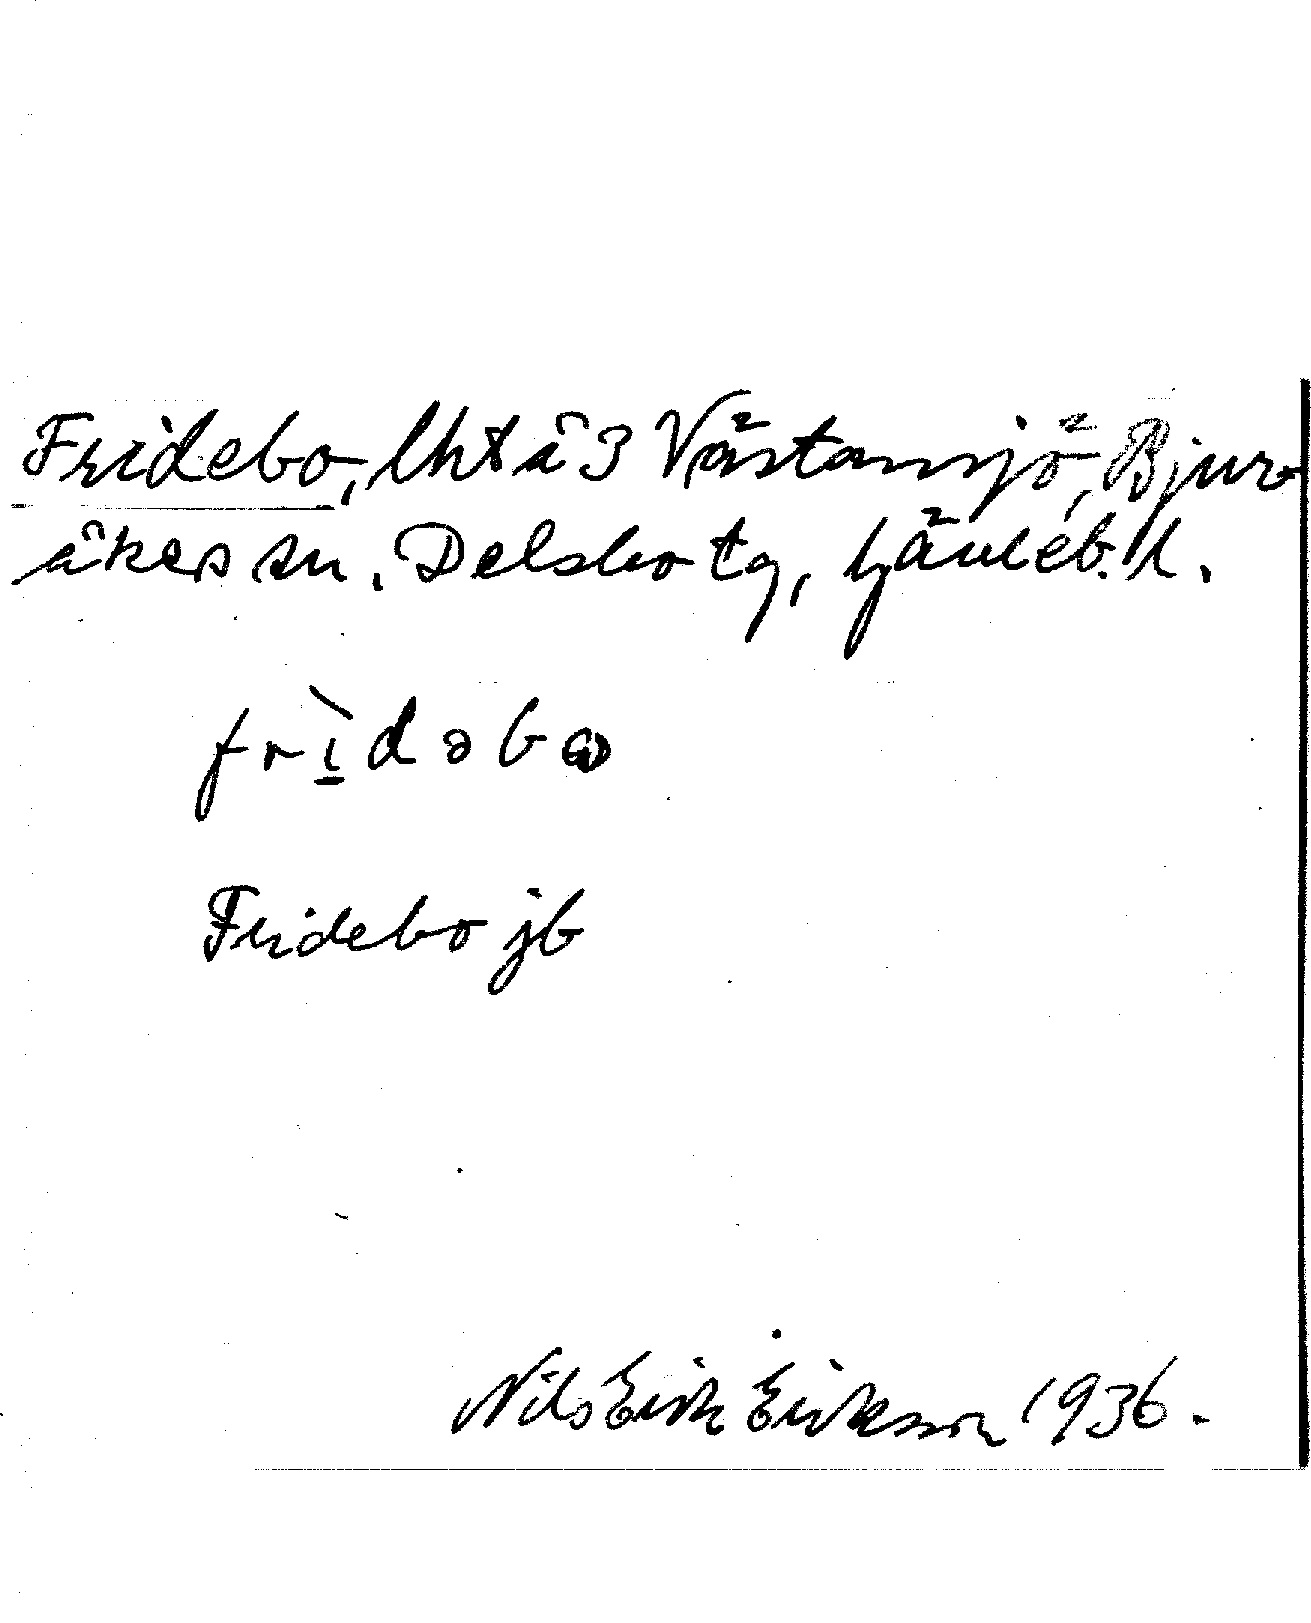 Fridebo, lht å 3 Västansjö, Bjur-
åkers sn. Delsbo tg, Gävleb. l.
frìdəbω
Fridebo jb
Nils Erik Eriksson 1936.